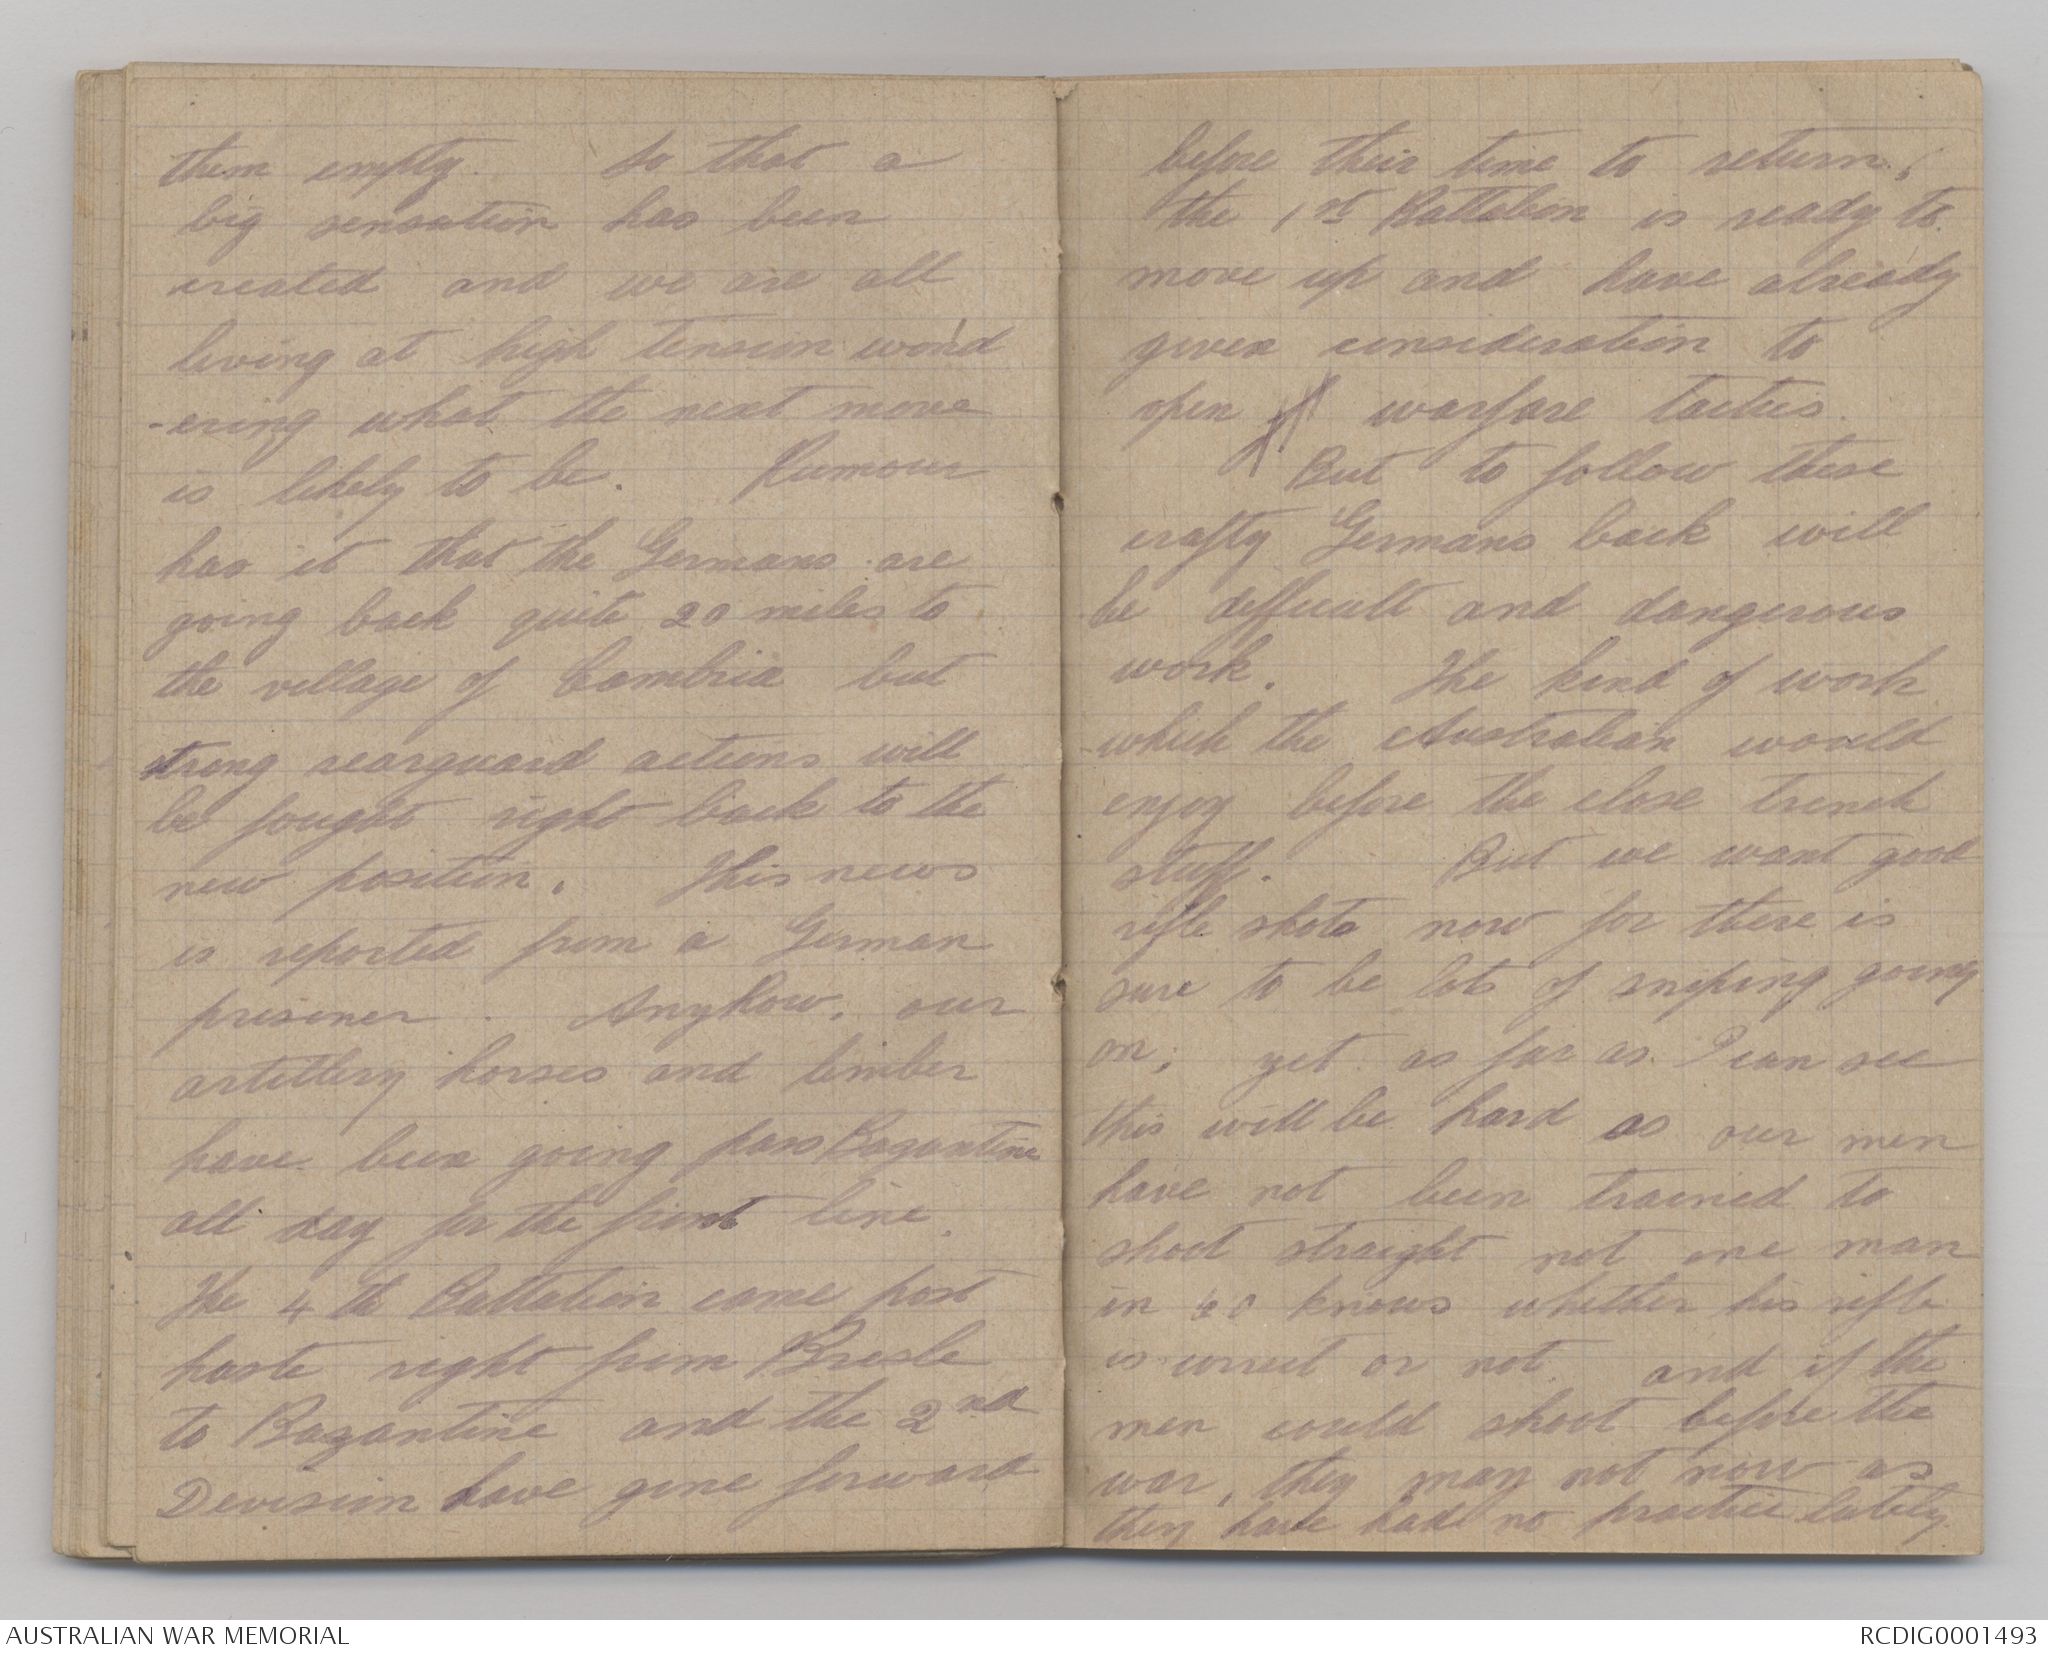 them empty. So that a
big sensation has been
created and we are all
living at high tension wond
-ering what the next move
is likely to be. Rumour
has it that the Germans are
going back quite 20 miles to
the village of Cambria but
strong rearguard actions will
be fought right back to the
new position. This news
is reported from a German
prisoner. Anyhow, our
artillery horses and limber
have been going pass Bazantine
all day for the front line.
The 4th Battalion came post
haste right from Bresle
to Bazantine and the 2nd
Division have gone forward
before their time to return,
the 1st Battalion is ready to
move up and have already
given consideration to
open warfare tactics.
But to follow these
crafty Germans back will
be difficult and dangerous
work. The kind of work
which the Australian would
enjoy before the close trench
stuff. But we want good
rifle shots now for there is
sure to be lots of sniping going
on; yet as far as I can see
this will be hard as our men
have not been trained to
shoot straight not one man
in knows whether his rifle
is correct or not. and if the
men could shoot before the
war, they may not now as
they have had no practice lately.
AUSTRALIAN WAR MEMORIAL
RCDIG0001493